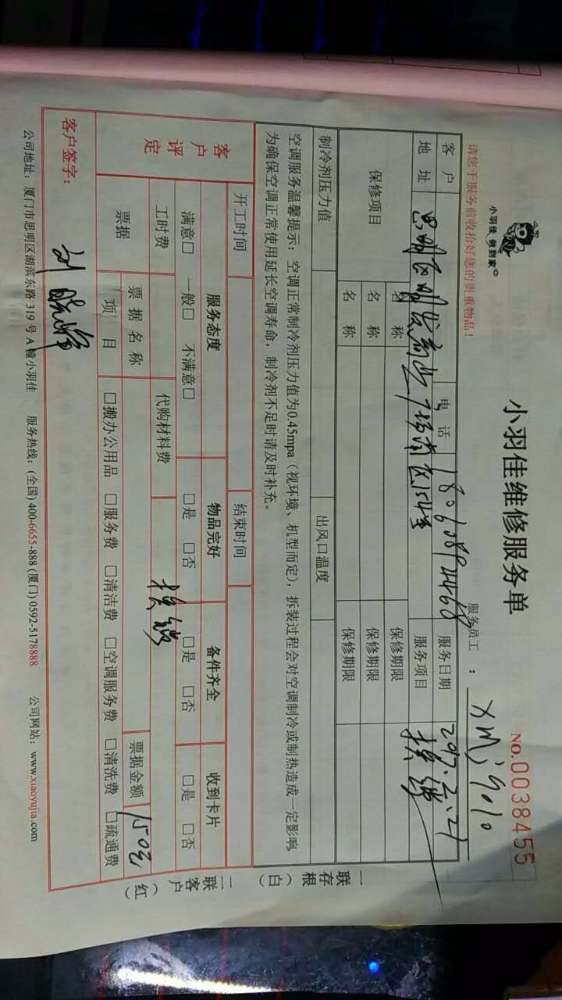 小羽佳 做到家
小羽佳维修服务单
NO.0038455
请您于服务前收拾好您的贵重物品！
服务员工：XMJ9010
客户 电话 18060894468 服务日期 2017.2.21
地址 思明区明发商业广场南区154室 服务项目 换锁
保修项目 名称 保修期限
名称 保修期限
名称 保修期限
制冷剂压力值 出风口温度
空调服务温馨提示：空调正常制冷剂压力值为0.45mpa（视环境、机型而定），拆装过程会对空调制冷或制热造成一定影响，
为确保空调正常使用延长空调寿命，制冷剂不足时请及时补充。
开工时间 结束时间
客户评定 服务态度 物品完好 备件齐全 收到卡片
满意□ 一般□ 不满意□ □是 □否 □是 □否 □是 □否
工时费 代购材料费
票据 票据名称 换锁 票据金额 150元
项目 □搬办公用品 □服务费 □清洁费 □空调服务费 □清洗费 □疏通费
客户签字：刘晓峰
公司地址：厦门市思明区湖滨东路319号A幢小羽佳 服务热线：(全国)400-6655-888 (厦门)0592-5178888 公司网站：www.xiaoyujia.com
一联存根（白）
二联客户（红